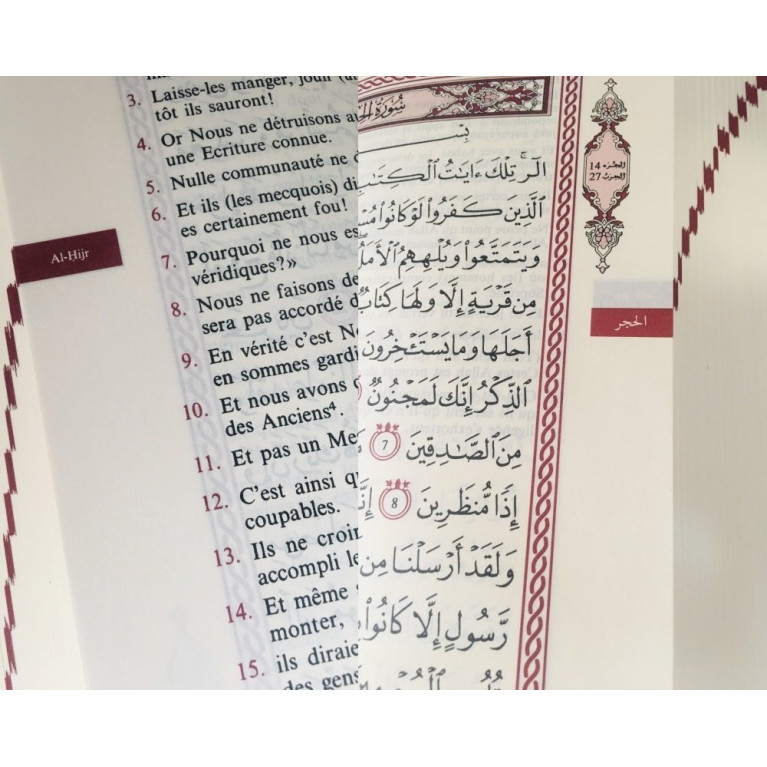 3. Laisse-les manger, jouir
tôt ils sauront!
4. Or Nous ne détruisons
une Ecriture connue.
5. Nulle communauté ne
6. Et ils (les mecquois)
es certainement fou!
7. Pourquoi ne nous
véridiques?»
8. Nous ne faisons
sera pas accordé
9. En vérité c'est
en sommes
10. Et nous avons
des Anciens⁴.
11. Et pas un
12. C'est ainsi
coupables.
13. Ils ne
accompli
14. Et même
monter,
15. ils
des
Al-Hijr
سُورَةُ
الٓر ۚ تِلْكَ ءَايَٰتُ ٱلْكِتَٰبِ
ٱلَّذِينَ كَفَرُوا۟ لَوْ كَانُوا۟
وَيَتَمَتَّعُوا۟ وَيُلْهِهِمُ ٱلْأَمَلُ
مِن قَرْيَةٍ إِلَّا وَلَهَا كِتَابٌ
أَجَلَهَا وَمَا يَسْتَـْٔخِرُونَ
ٱلذِّكْرُ إِنَّكَ لَمَجْنُونٌ
مِنَ ٱلصَّٰدِقِينَ 7
إِذًا مُّنظَرِينَ 8
وَلَقَدْ أَرْسَلْنَا مِن
رَّسُولٍ إِلَّا كَانُوا۟
الجزء 14
الحزب 27
الحجر